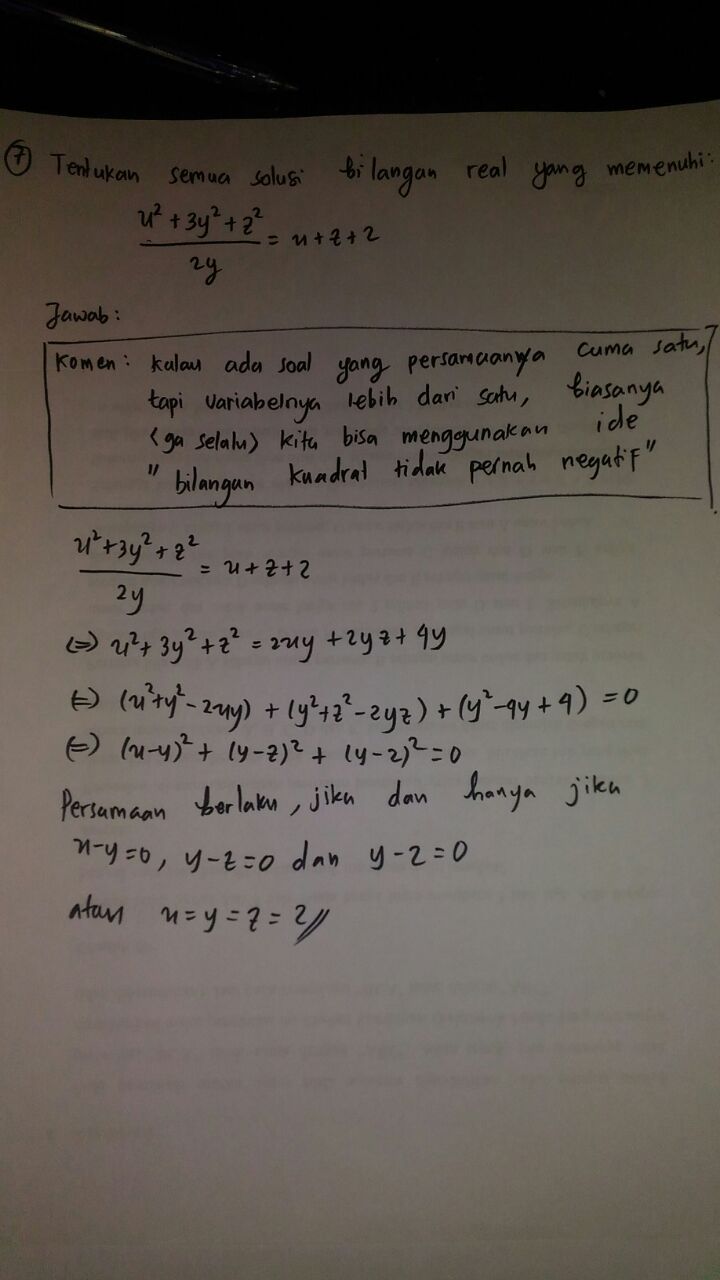 7 Tentukan semua solusi bilangan real yang memenuhi:
x² + 3y² + z² / 2y = x + z + 2
Jawab:
Komen: kalau ada soal yang persamaannya cuma satu,
tapi variabelnya lebih dari satu, biasanya
(ga selalu) kita bisa menggunakan ide
"bilangan kuadrat tidak pernah negatif"
x² + 3y² + z² / 2y = x + z + 2
⇔ x² + 3y² + z² = 2xy + 2yz + 4y
⇔ (x² + y² - 2xy) + (y² + z² - 2yz) + (y² - 4y + 4) = 0
⇔ (x-y)² + (y-z)² + (y-2)² = 0
Persamaan berlaku, jika dan hanya jika
x-y=0, y-z=0 dan y-2=0
atau x=y=z=2//